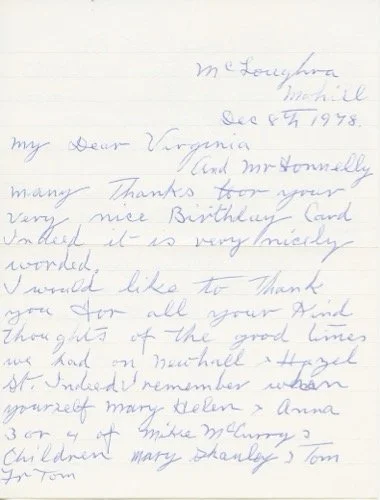 McLoughra
Mohill
Dec 8th 1978.
My Dear Virginia
And Mr Donnelly
many Thanks for your
very nice Birthday Card
Indeed it is very nicely
worded.
I would like to Thank
you for all your Kind
thoughts of the good times
we had on Newhall & Hazel
St. Indeed I remember when
yourself Mary Helen & Anna
3 or 4 of Mike McCurry's
Children Mary Shanley & Tom
Fr Tom